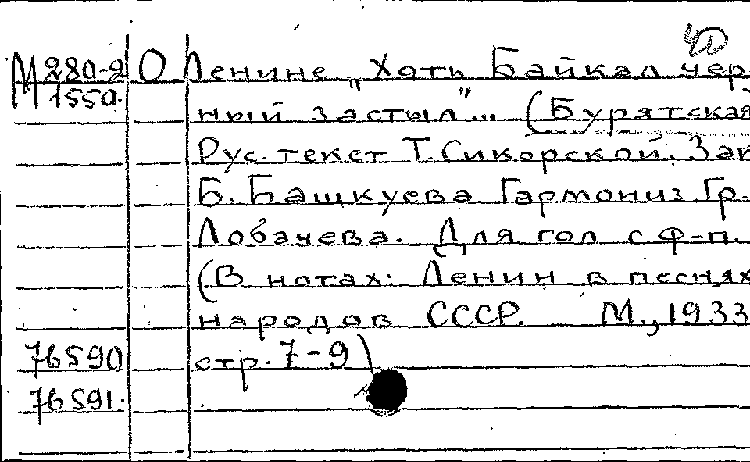 М 280-2 О Ленине „Хоть Байкал чер-
М 1550. ный застыл"... (Бурятская
Рус. текст Т. Сикорской. Зап
Б. Башкуева Гармониз. Гр.
Лобачева. Для гол с ф-п.
(В нотах: Ленин в песнях
народов СССР. М., 1933
76590 стр. 7-9)
76591.